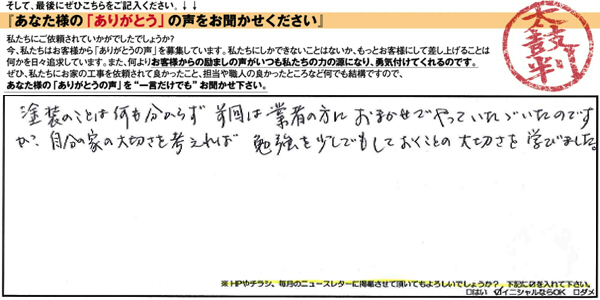 そして、最後にぜひこちらをご記入ください。↓↓
『あなた様の「ありがとう」の声をお聞かせください』
太鼓判
私たちにご依頼されていかがでしたでしょうか？
今、私たちはお客様から「ありがとうの声」を募集しています。私たちにしかできないことはないか、もっとお客様にして差し上げることは
何かを日々追求しています。また、何よりお客様からの励ましの声がいつも私たちの力の源になり、勇気付けてくれるのです。
ぜひ、私たちにお家の工事を依頼されて良かったこと、担当や職人の良かったところなど何でも結構ですので、
あなた様の「ありがとうの声」を“一言だけでも”お聞かせ下さい。
塗装のことは何も分からず 前回は業者の方におまかせでやっていただいたのです
が、自分の家の大切さを考えれば 勉強を少しでもしておくことの大切さを学びました。
※HPやチラシ、毎月のニュースレターに掲載させて頂いてもよろしいでしょうか？ 下記に☑を入れて下さい。
□はい ☑イニシャルならOK □ダメ